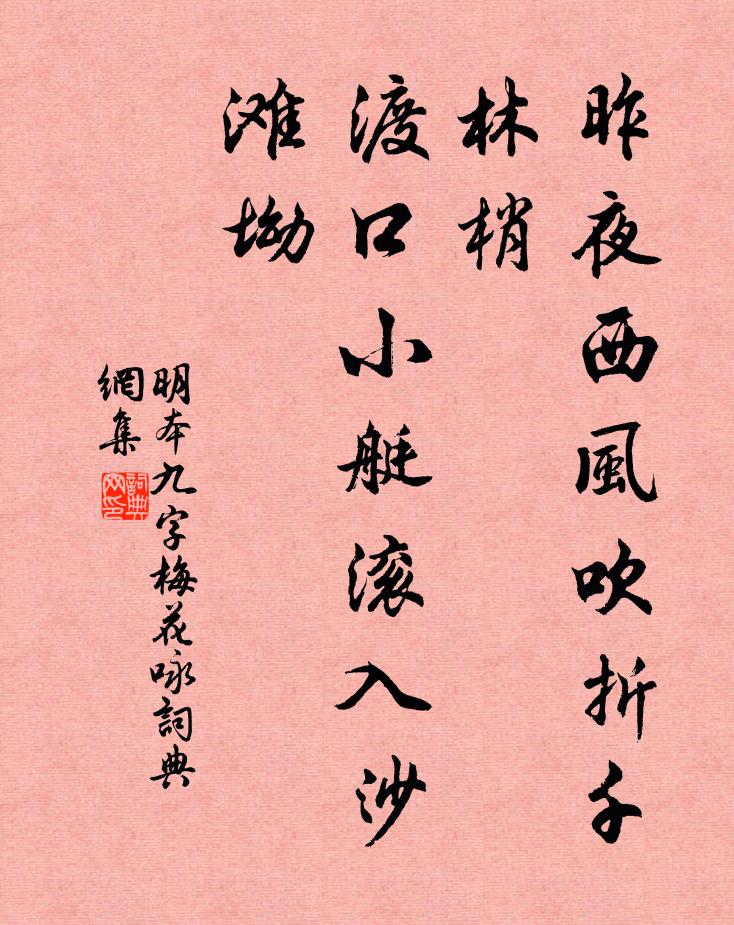 昨夜西風吹折千
林梢
渡口小艇滚入沙
滩坳
明本九字梅花咏詞典
網集
詞典网印